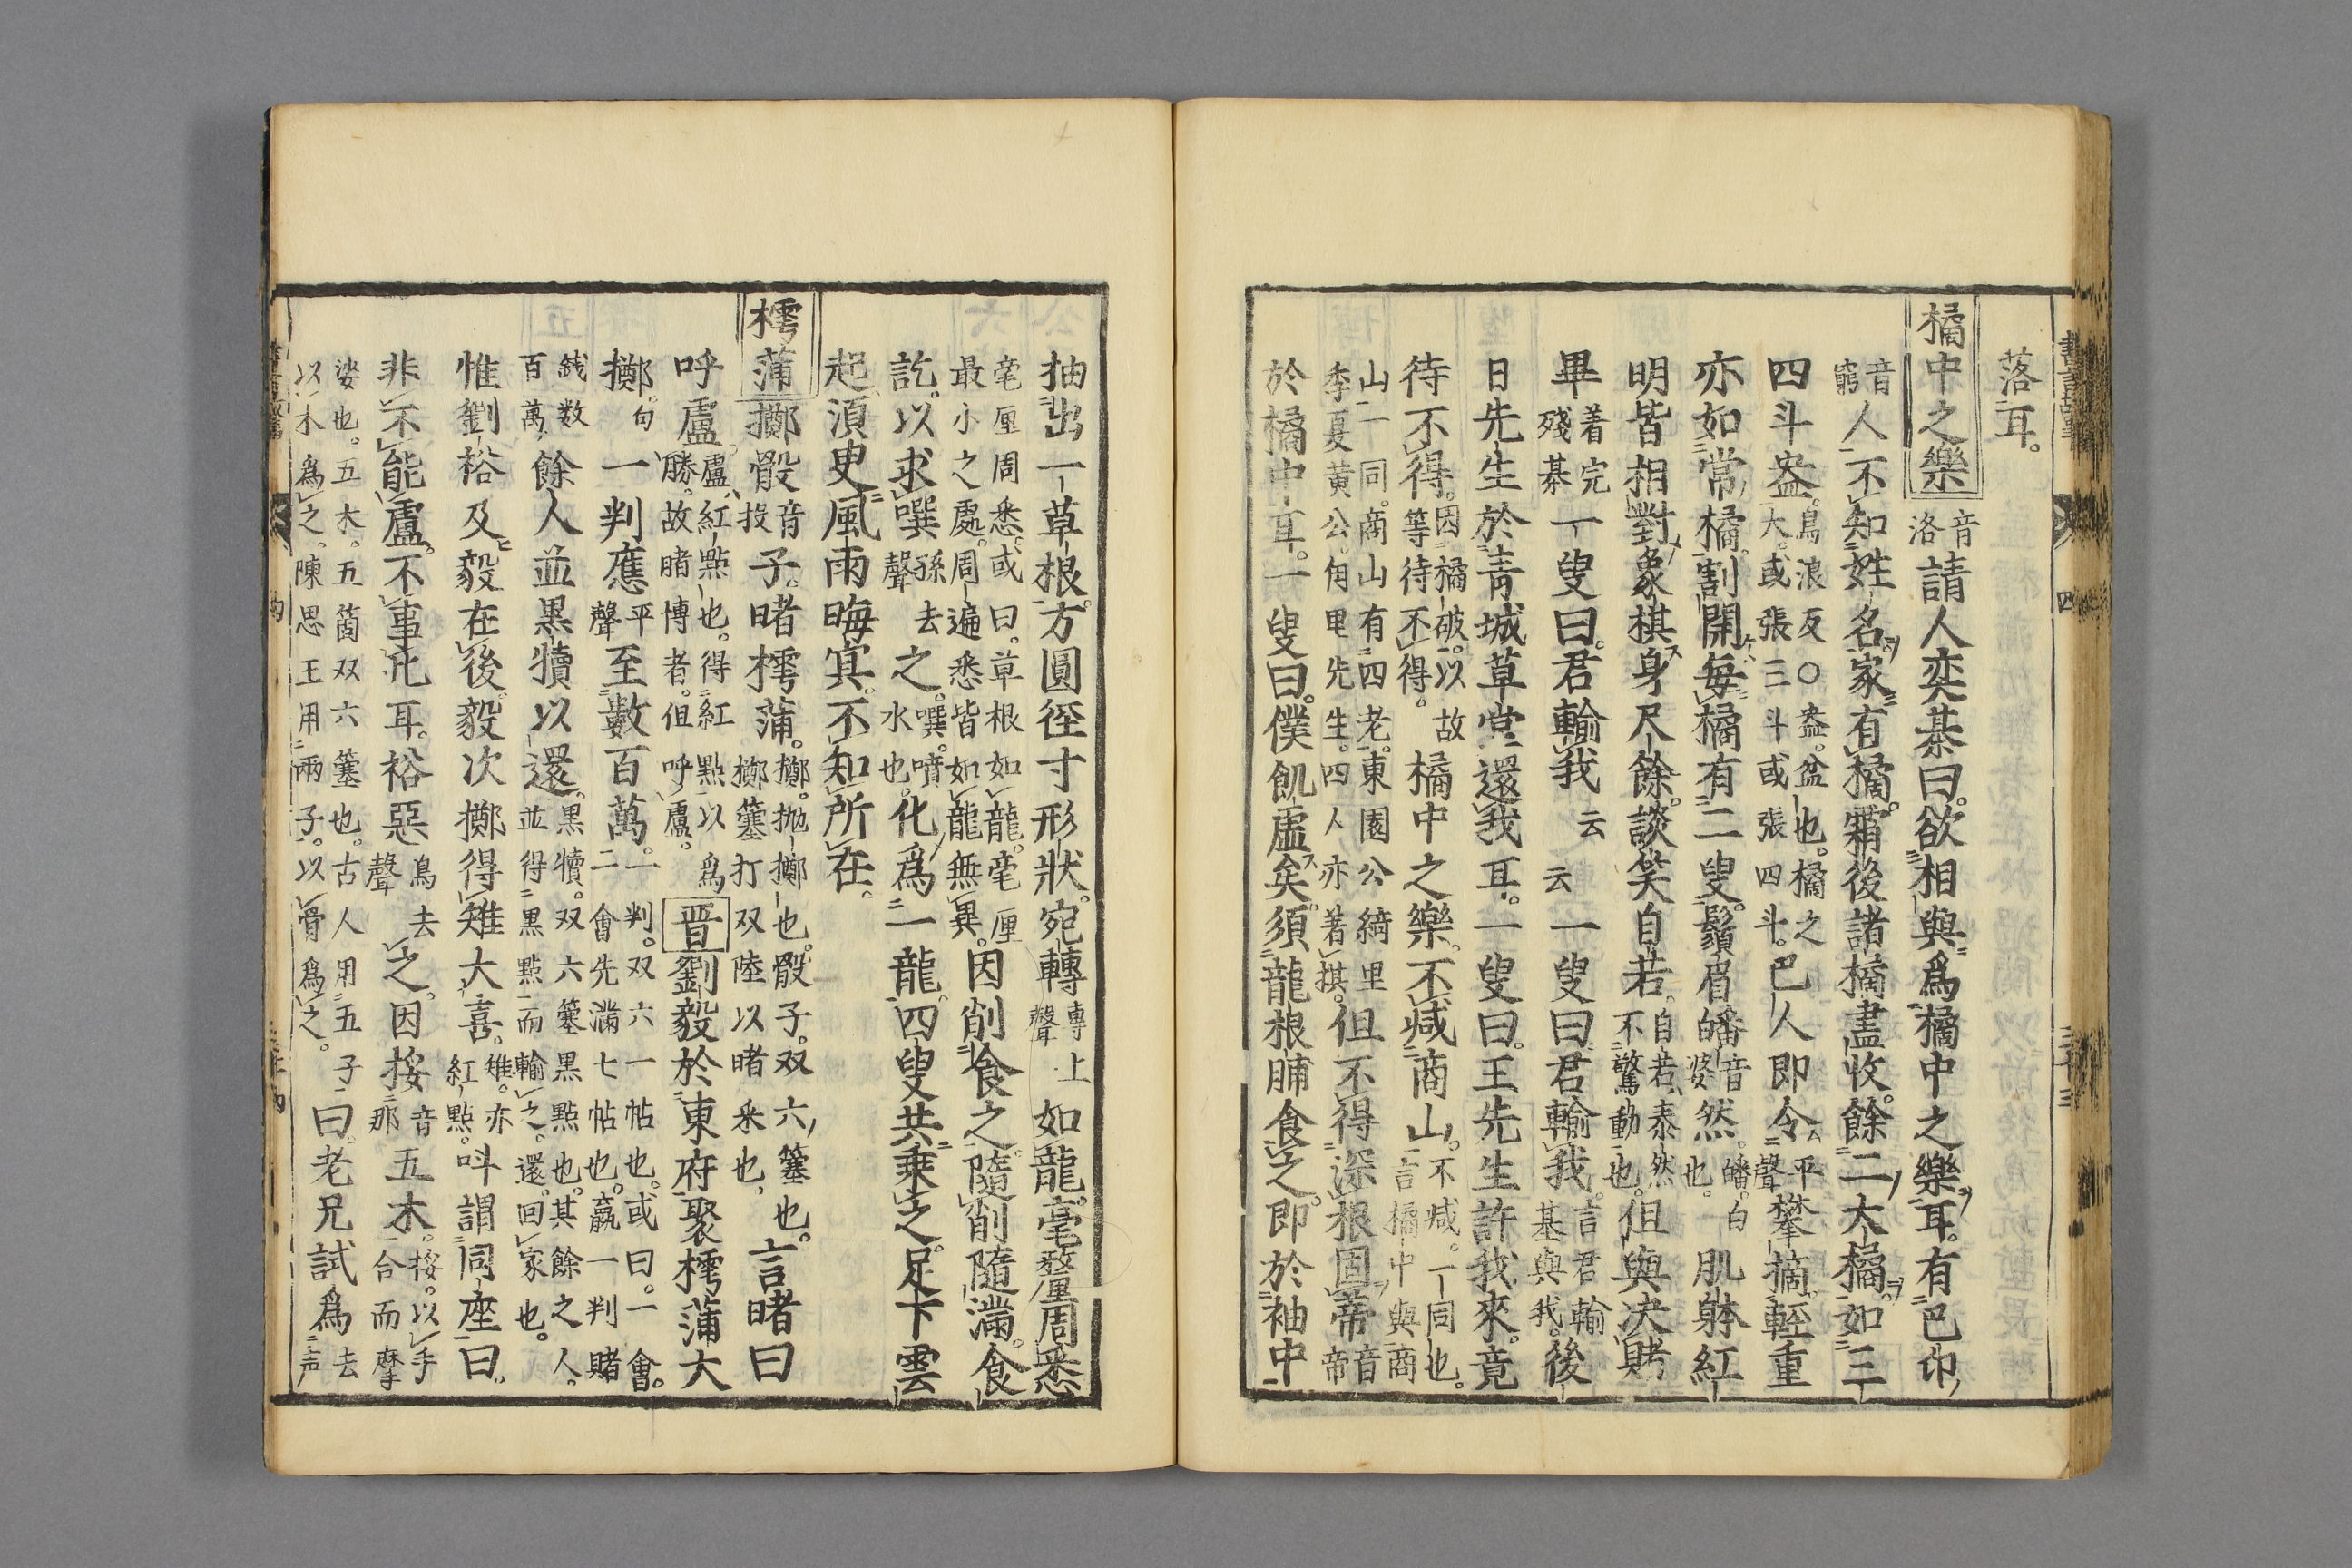 落耳。
橘中之樂音洛請人奕棊曰。欲相與爲橘中之樂耳。有巴卭
音窮人不知姓名家有橘。霜後諸橘盡收。餘二大橘如三
四斗盎。烏浪反○盎。盆也。橘之大。或張三斗或張四斗。巴人即令平聲攀摘。輕重
亦如常橘。割開每橘有二叟。鬚眉皤音婆然。皤。白也。肌躰紅
明皆相對象棋身尺餘。談笑自若。自若。泰然不驚動也。但與决賭
畢着完殘棊一叟曰。君輸我云云一叟曰君輸我。言君輸基與我。後
日先生於青城草堂還我耳。一叟曰。王先生許我來。竟
待不得。因橘破。以故等待不得。橘中之樂。不减商山。不减。一同也。言橘中與商
山一同。商山有四老。東園公綺里季夏黄公。甪里先生。四人亦着棋。但不得深根固蒂音帝
於橘中耳。一叟曰。僕飢虛矣。須龍根脯食之。即於袖中
抽出一草根。方圓徑寸形狀。宛轉專上聲如龍。毫釐周悉
毫厘周悉。或曰。草根如龍。毫厘最小之處。周遍悉皆如龍無異。因削食之。隨削隨滿。食
訖。以求噀孫去聲之。噀。噴水也。化爲一龍。四叟共乘之。足下雲
起。須臾風雨晦㝠。不知所在。
樗蒲擲骰音投子。賭樗蒲。擲。抛擲也。骰子。双六簺也。擲簺打双陸以賭釆也。言賭曰
呼盧。盧。紅點也。得紅點以爲勝。故賭博者。但呼盧。晋劉毅於東府聚樗蒲大
擲。句一判應平聲至數百萬。一判。双六一帖也。或曰。一會。二會先滿七帖也。贏一判賭
銭数百萬餘人並黒犢以還。黒犢。双六簺黒點也。其餘之人。並得黒點而輸之。還。回家也。
惟劉裕及毅在後。毅次擲得雉大喜。雉。亦紅點。呌謂同座曰。
非不能盧。不事此耳。裕惡烏去聲之。因挼音那五木。挼。以手合而摩
娑也。五木。五箇双六簺也。古人用五子以木爲之。陳思王用兩子。以骨爲之。曰。老兄試爲去声